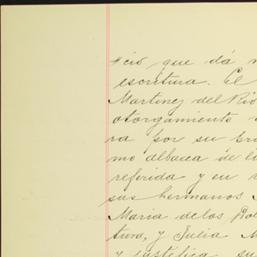 #cio que dá
escritura. El
Martinez del Rio
otorgamiento
ra por su
mo albacea de l
referida y en
sus hermanos
Maria de los Dol
turo, y Julia M
y justifica su